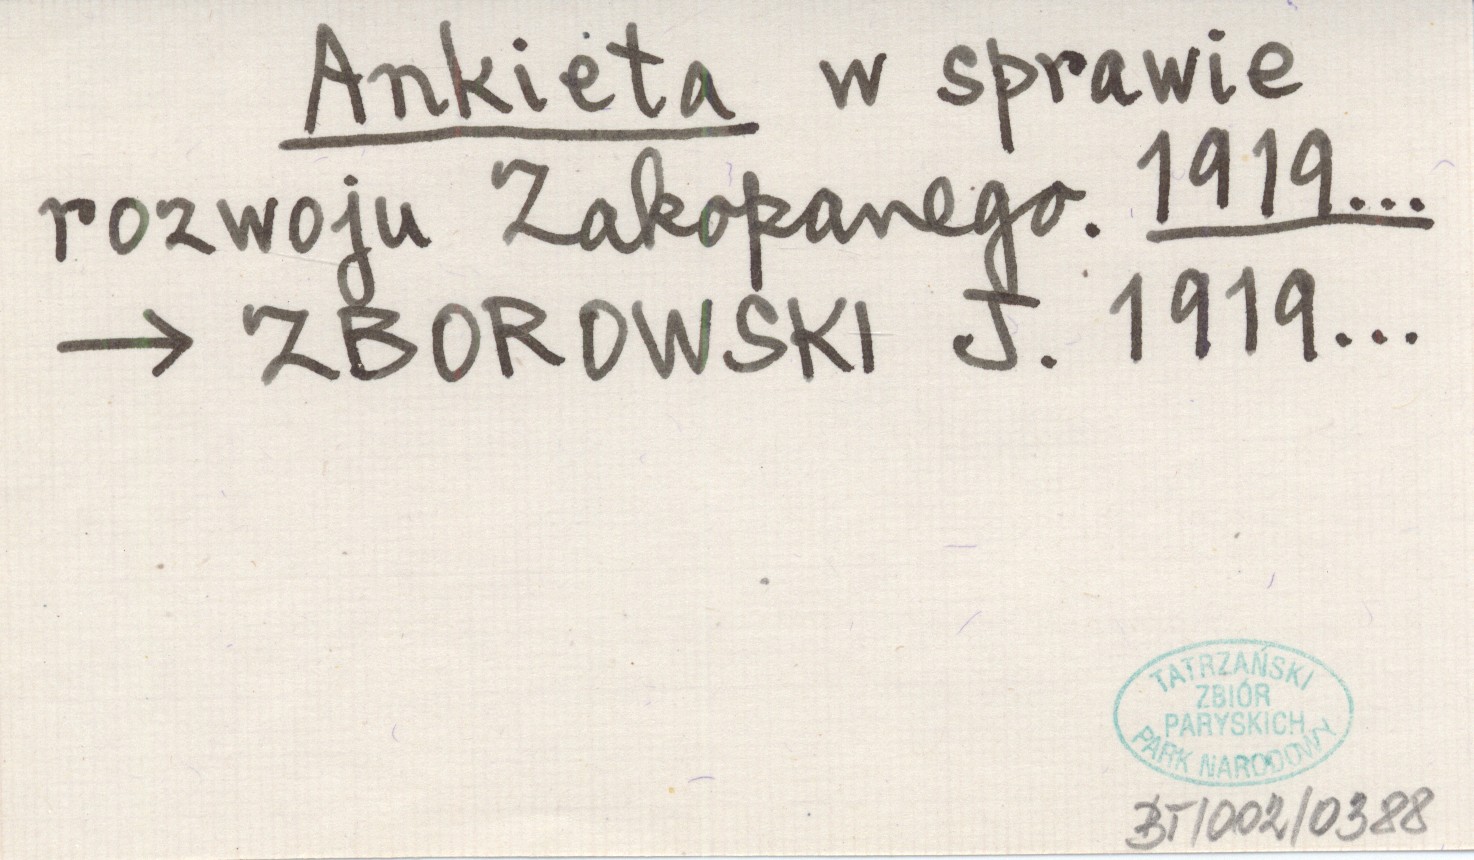 Ankieta w sprawie
rozwoju Zakopanego. 1919...
→ ZBOROWSKI J. 1919...
TATRZAŃSKI
ZBIÓR
PARYSKICH
PARK NARODOWY
BT/002/0388